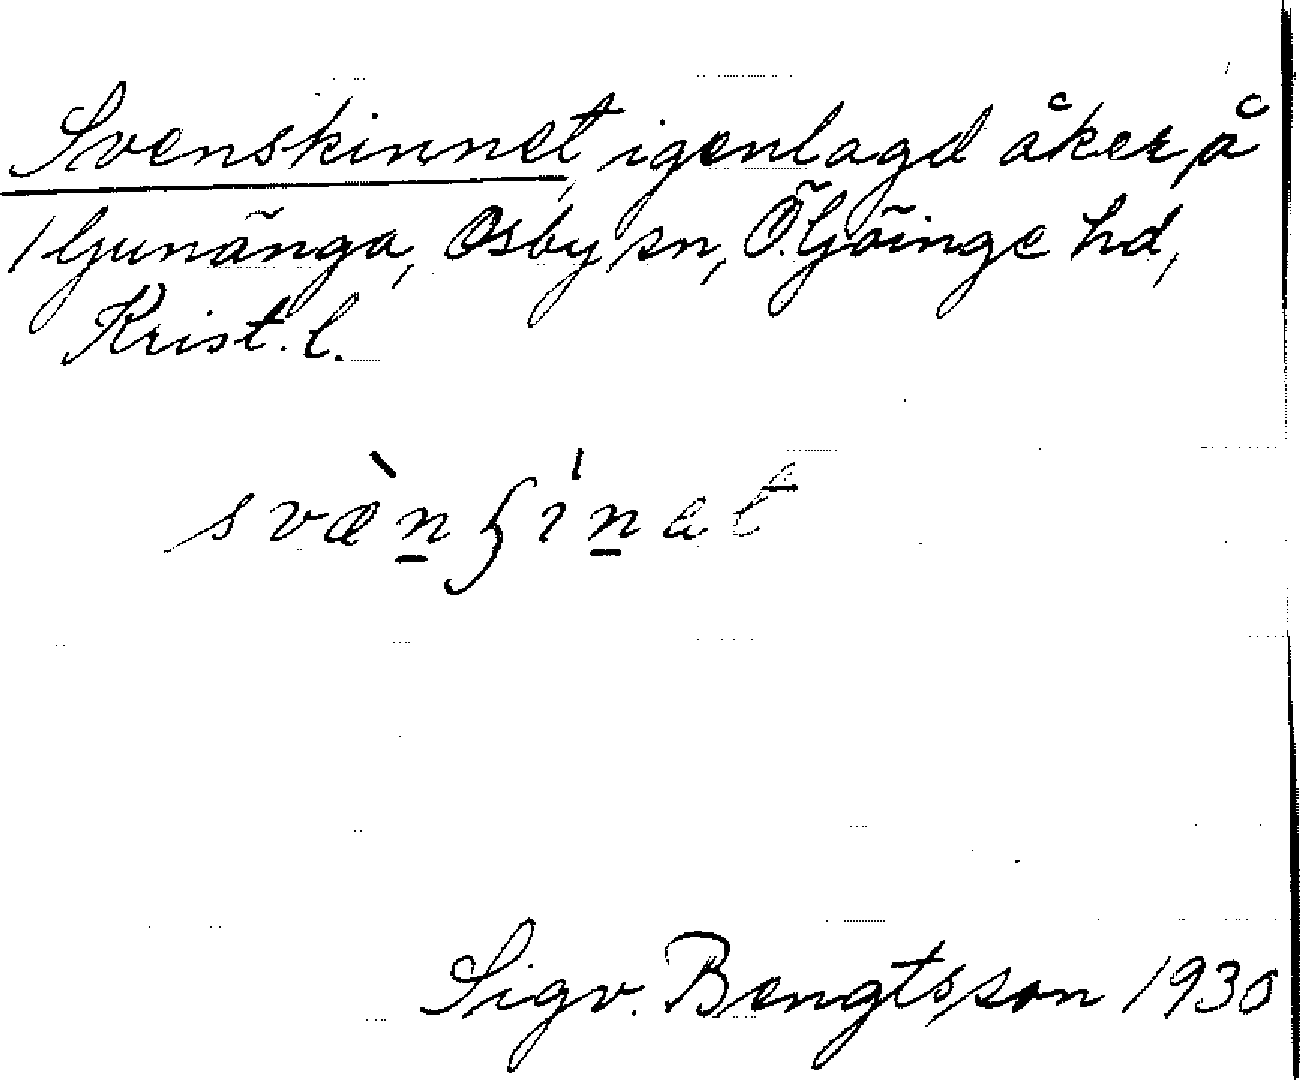 Svenskinnet, igenlagd åker på
1 Ljunänga, Osby sn, Ö. Göinge hd,
Krist. l.
Sigv. Bengtsson 1930